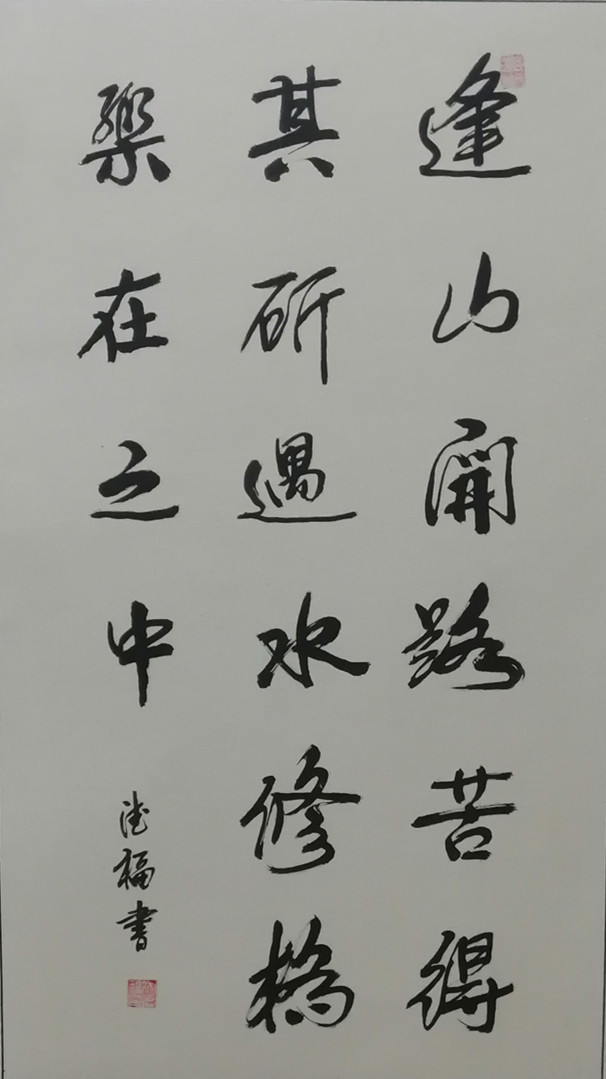 逢山開路苦得
其所遇水修橋
樂在之中
德福書